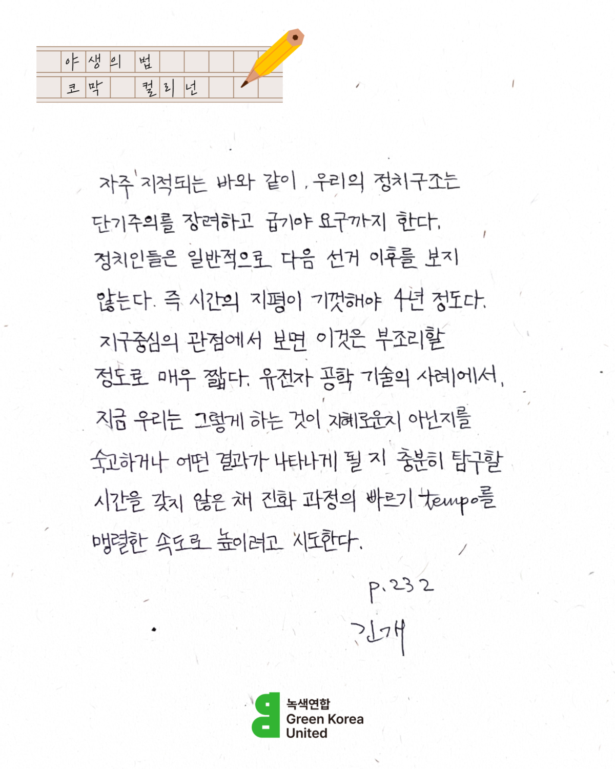 야생의 법
코막 컬리넌
자주 지적되는 바와 같이, 우리의 정치구조는
단기주의를 장려하고 급기야 요구까지 한다.
정치인들은 일반적으로 다음 선거 이후를 보지
않는다. 즉 시간의 지평이 기껏해야 4년 정도다.
지구중심의 관점에서 보면 이것은 부조리할
정도로 매우 짧다. 유전자 공학 기술의 사례에서,
지금 우리는 그렇게 하는 것이 지혜로운지 아닌지를
숙고하거나 어떤 결과가 나타나게 될 지 충분히 탐구할
시간을 갖지 않은 채 진화 과정의 바르기 tempo를
맹렬한 속도로 높이려고 시도한다.
p.232
긴개
녹색연합
Green Korea
United